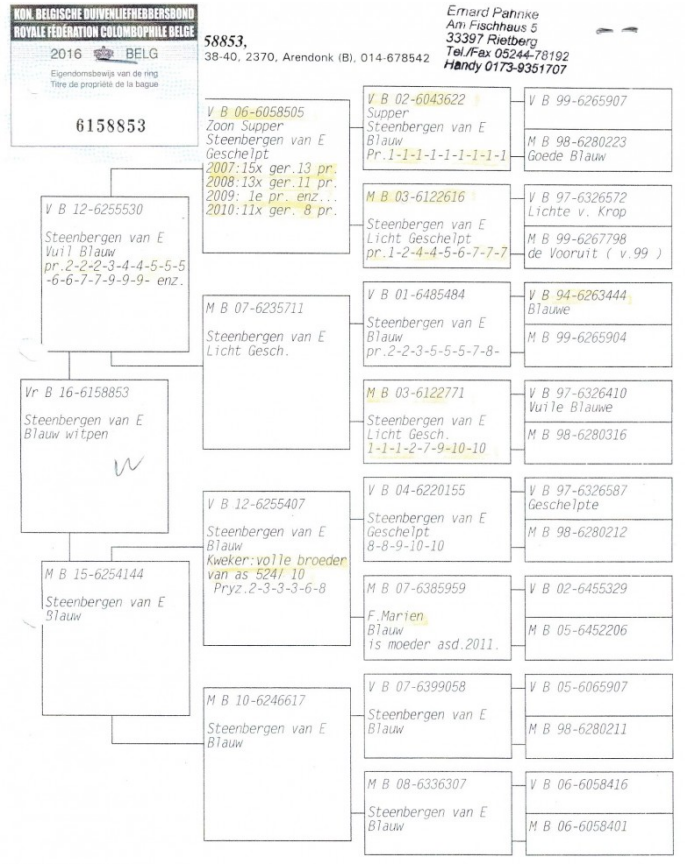 KON. BELGISCHE DUIVENLIEFHEBBERSBOND
ROYALE FÉDÉRATION COLOMBOPHILE BELGE
2016 BELG
Eigendomsbewijs van de ring
Titre de propriété de la bague
6158853
58853,
38-40, 2370, Arendonk (B), 014-678542
Am Fischhaus 5
33397 Rietberg
Tel./Fax 05244-78192
Handy 0173-9351707
Vr B 16-6158853
Steenbergen van E
Blauw witpen
V B 12-6255530
Steenbergen van E
Vuil Blauw
pr.2-2-2-3-4-4-5-5-5
-6-6-7-7-9-9-9- enz.
M B 15-6254144
Steenbergen van E
Blauw
V B 06-6058505
Zoon Supper
Steenbergen van E
Geschelpt
2007:15x ger.13 pr.
2008:13x ger.11 pr.
2009: 1e pr. enz...
2010:11x ger. 8 pr.
M B 07-6235711
Steenbergen van E
Licht Gesch.
V B 12-6255407
Steenbergen van E
Blauw
Kweker:volle broeder
van as 524/ 10
Pryz.2-3-3-3-6-8
M B 10-6246617
Steenbergen van E
Blauw
V B 02-6043622
Supper
Steenbergen van E
Blauw
Pr.1-1-1-1-1-1-1-1-1
M B 03-6122616
Steenbergen van E
Licht Geschelpt
pr.1-2-4-4-5-6-7-7-7
V B 01-6485484
Steenbergen van E
Blauw
pr.2-2-3-5-5-5-7-8-
M B 03-6122771
Steenbergen van E
Licht Gesch.
1-1-1-2-7-9-10-10
V B 04-6220155
Steenbergen van E
Geschelpt
8-8-9-10-10
M B 07-6385959
F.Marien
Blauw
is moeder asd.2011.
V B 07-6399058
Steenbergen van E
Blauw
M B 08-6336307
Steenbergen van E
Blauw
V B 99-6265907
M B 98-6280223
Goede Blauw
V B 97-6326572
Lichte v. Krop
M B 99-6267798
de Vooruit ( v.99 )
V B 94-6263444
Blauwe
M B 99-6265904
V B 97-6326410
Vuile Blauwe
M B 98-6280316
V B 97-6326587
Geschelpte
M B 98-6280212
V B 02-6455329
M B 05-6452206
V B 05-6065907
M B 98-6280211
V B 06-6058416
M B 06-6058401